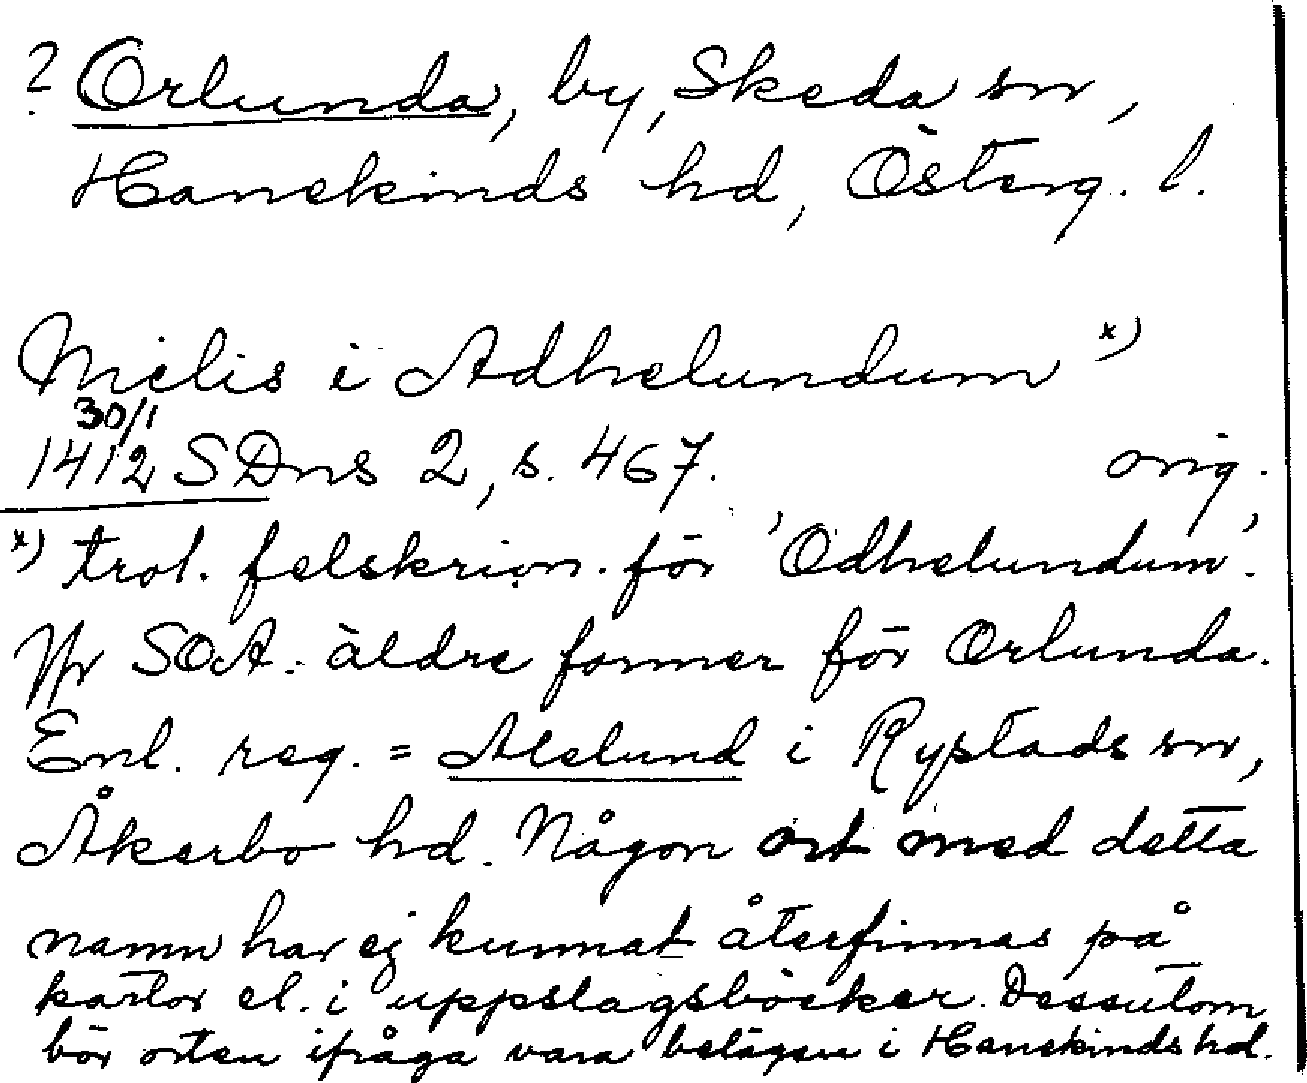 ? Orlunda, by, Skeda sn,
Hanekinds hd, Österg. l.
Nielis i Adhelundum x)
30/1
1412 SDns 2, s. 467. orig.
x) trol. felskrivn. för 'Odhelundum'.
Jfr SOA: äldre former för Orlunda.
Enl. reg. = Alelund i Rystads sn,
Åkerbo hd. Någon ort med detta
namn har ej kunnat återfinnas på
kartor el. i uppslagsböcker. Dessutom
bör orten ifråga vara belägen i Hanekinds hd.